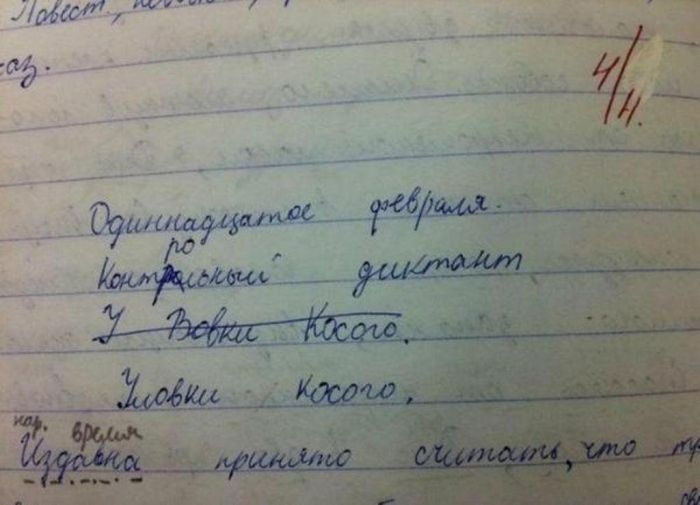 Повест
каз.
4/4.
Одиннадцатое февраля.
ро
Контрольный диктант
У Вовки Косого.
Уловки косого.
нар. время
Издавна принято считать, что